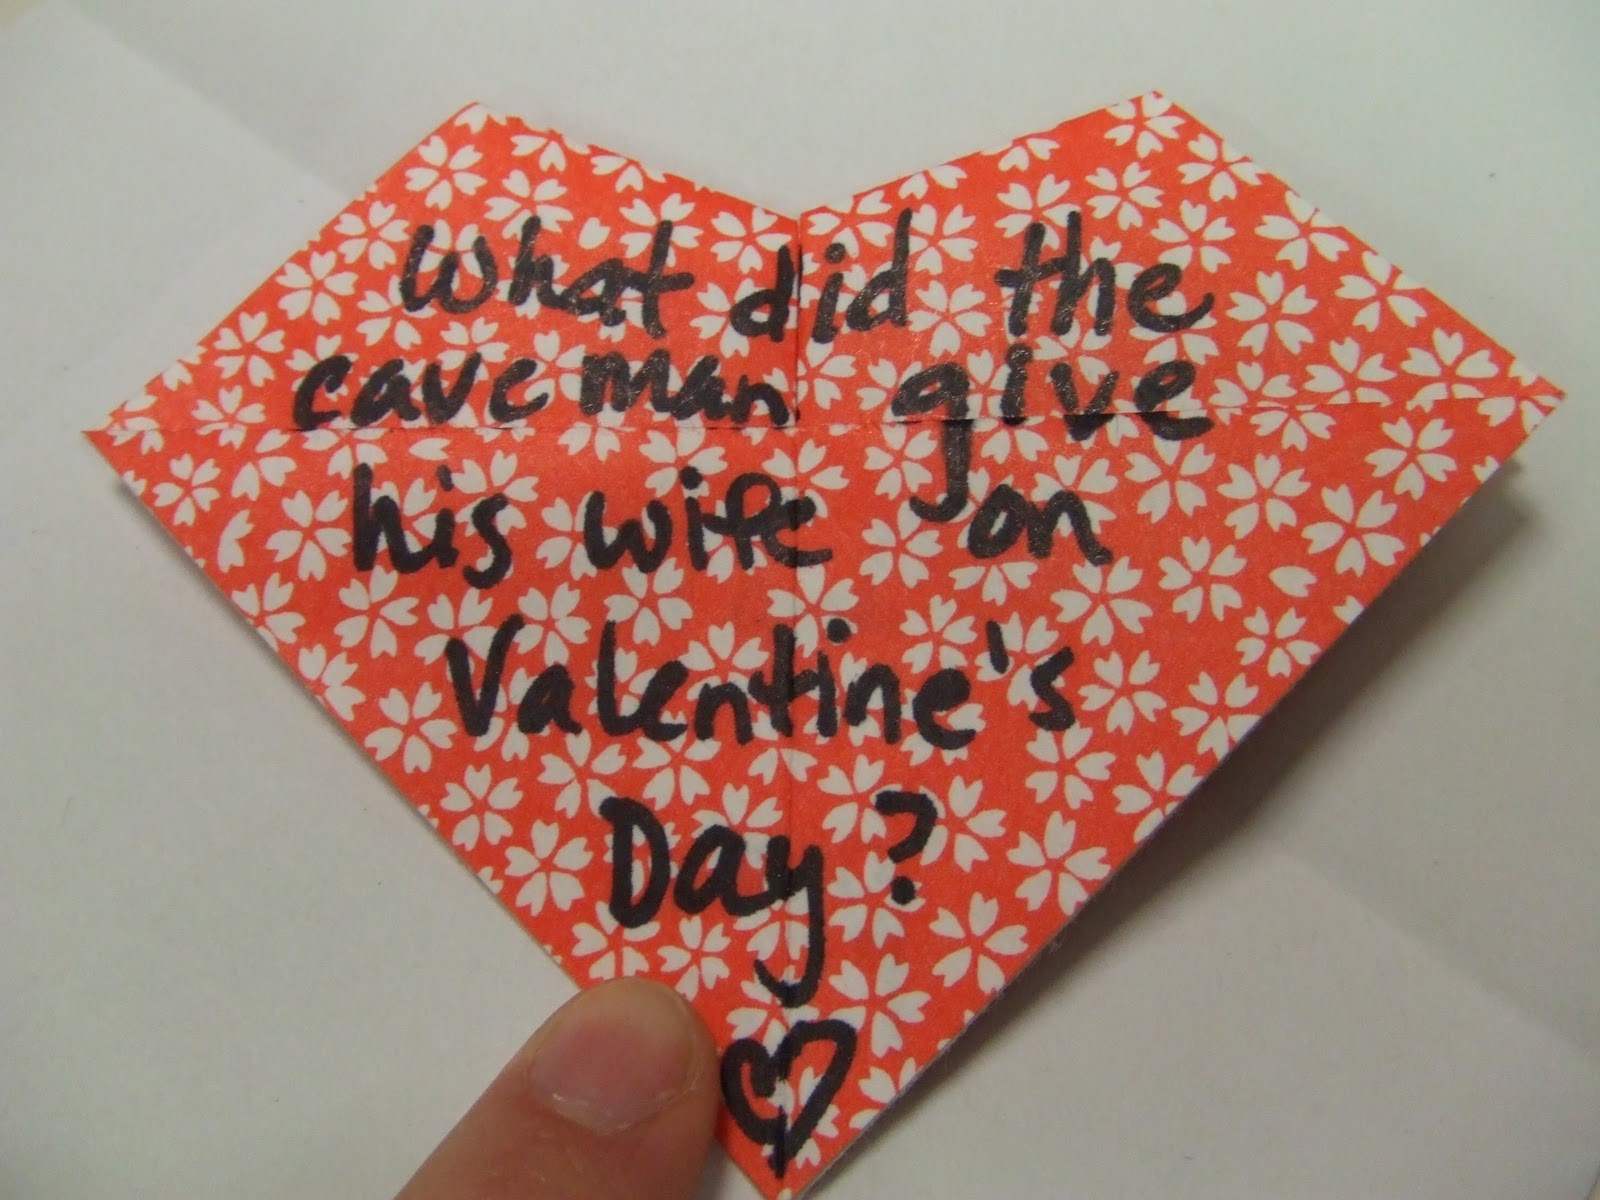 What did the
caveman give
his wife on
Valentine's
Day?